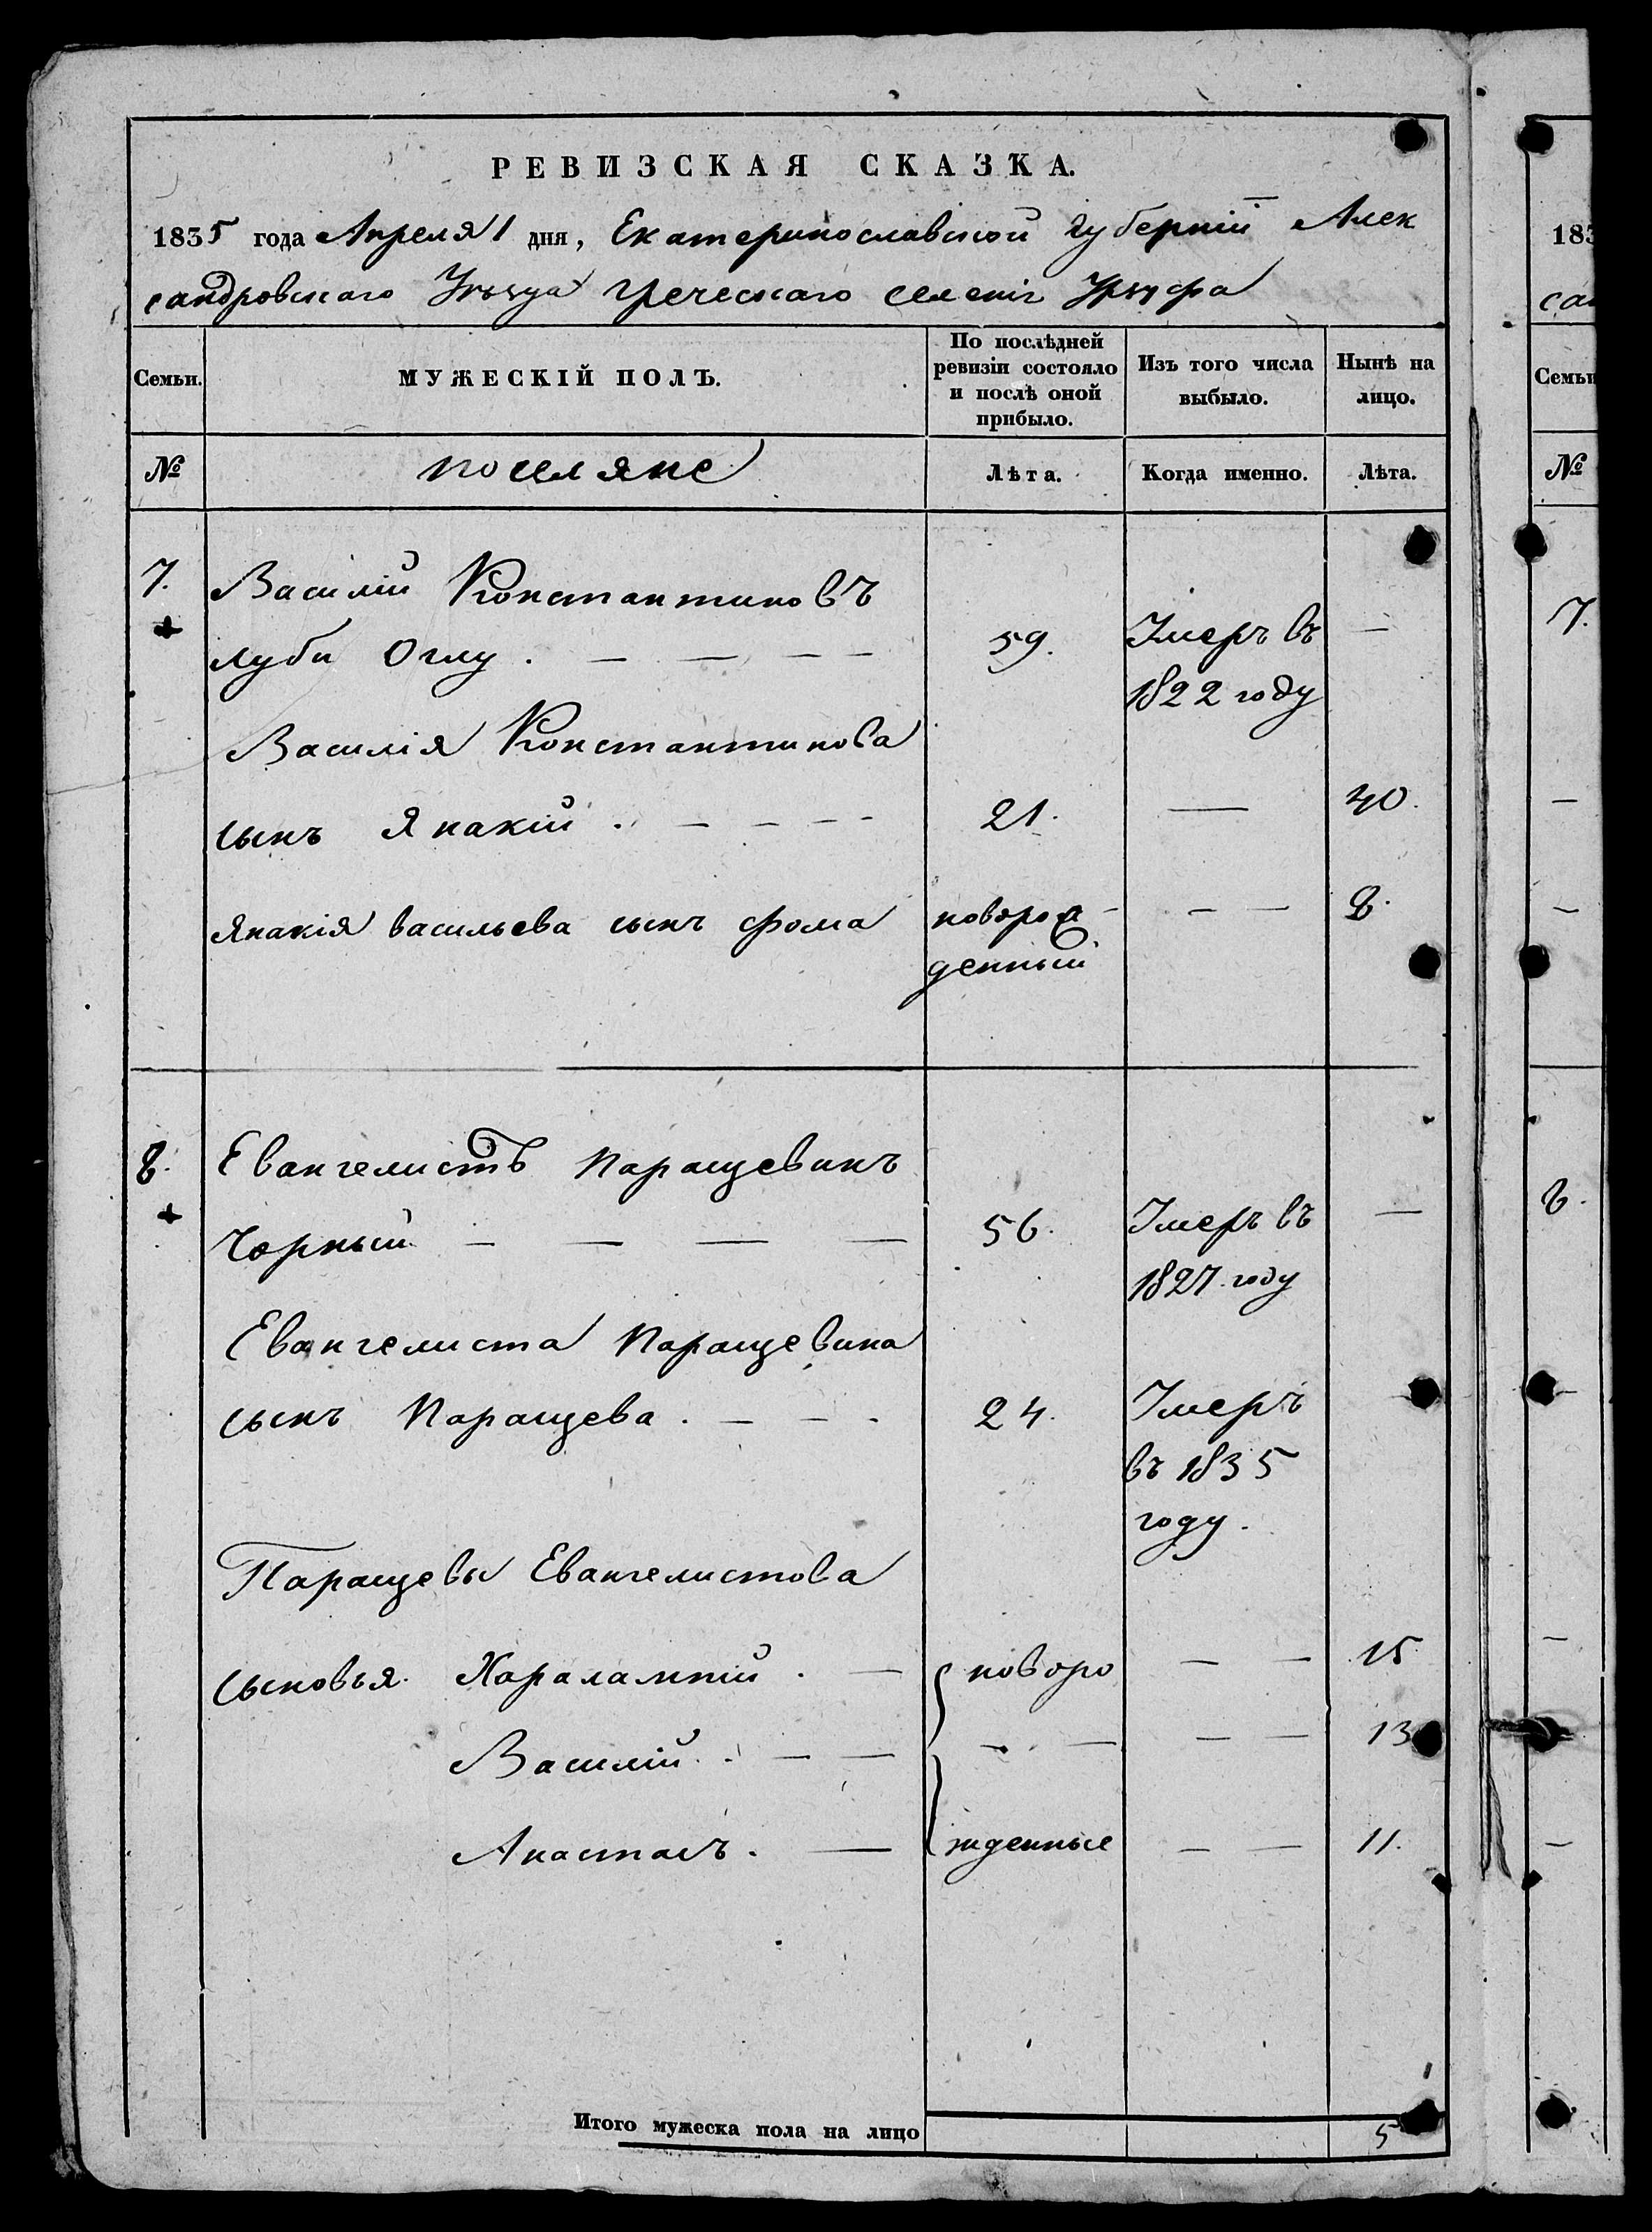 РЕВИЗСКАЯ СКАЗКА.
1835 года Апреля 1 дня, Екатеринославской Губерніи Алек
сандровскаго Уѣзда Греческаго селенія Урзуфа
Семьи. МУЖЕСКІЙ ПОЛЪ. По послѣдней ревизіи состояло и послѣ оной прибыло. Изъ того числа выбыло. Нынѣ на лицо.
№ поселяне Лѣта. Когда именно. Лѣта.
7. Василій Константиновъ
луби Оглу . — — — — 59. Умеръ въ —
1822 году
Василія Константинова
сынъ Янакій . — — — — 21. — 40.
Янакія васильева сынъ Фома новорож- — — 8.
денный
8. Евангелистъ Паращевинъ
Чорный — — — — 56. Умеръ въ —
1827 году
Евангелиста Паращевина
сынъ Паращева . — — - 24. Умеръ —
въ 1835
году.
Паращевы Евангелистова
сыновья Харалампій . — новоро — — 15
Василій . — — — — — — 13
Анастасъ . — жденные — — 11.
Итого мужеска пола на лицо 5
183
са
Семьи
№
7.
—
—
8.
—
—
—